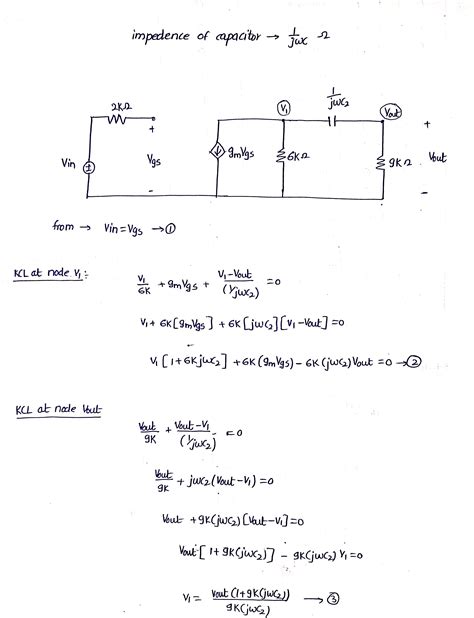 impedence of capacitor → 1/jωc Ω
2KΩ
+
Vin
Vgs
-
gmVgs
V1
6KΩ
1/jωc2
Vout
+
9KΩ
Vout
-
from → Vin = Vgs → ①
KCL at node V1:
V1/6K + gmVgs + (V1-Vout)/(1/jωc2) = 0
V1 + 6K[gmVgs] + 6K[jωc2][V1-Vout] = 0
V1[1+6Kjωc2] + 6K(gmVgs) - 6K(jωc2)Vout = 0 → ②
KCL at node Vout
Vout/9K + (Vout-V1)/(1/jωc2) = 0
Vout/9K + jωc2(Vout-V1) = 0
Vout + 9K(jωc2)[Vout-V1] = 0
Vout[1+9K(jωc2)] - 9K(jωc2)V1 = 0
V1 = Vout(1+9K(jωc2))/9K(jωc2) → ③